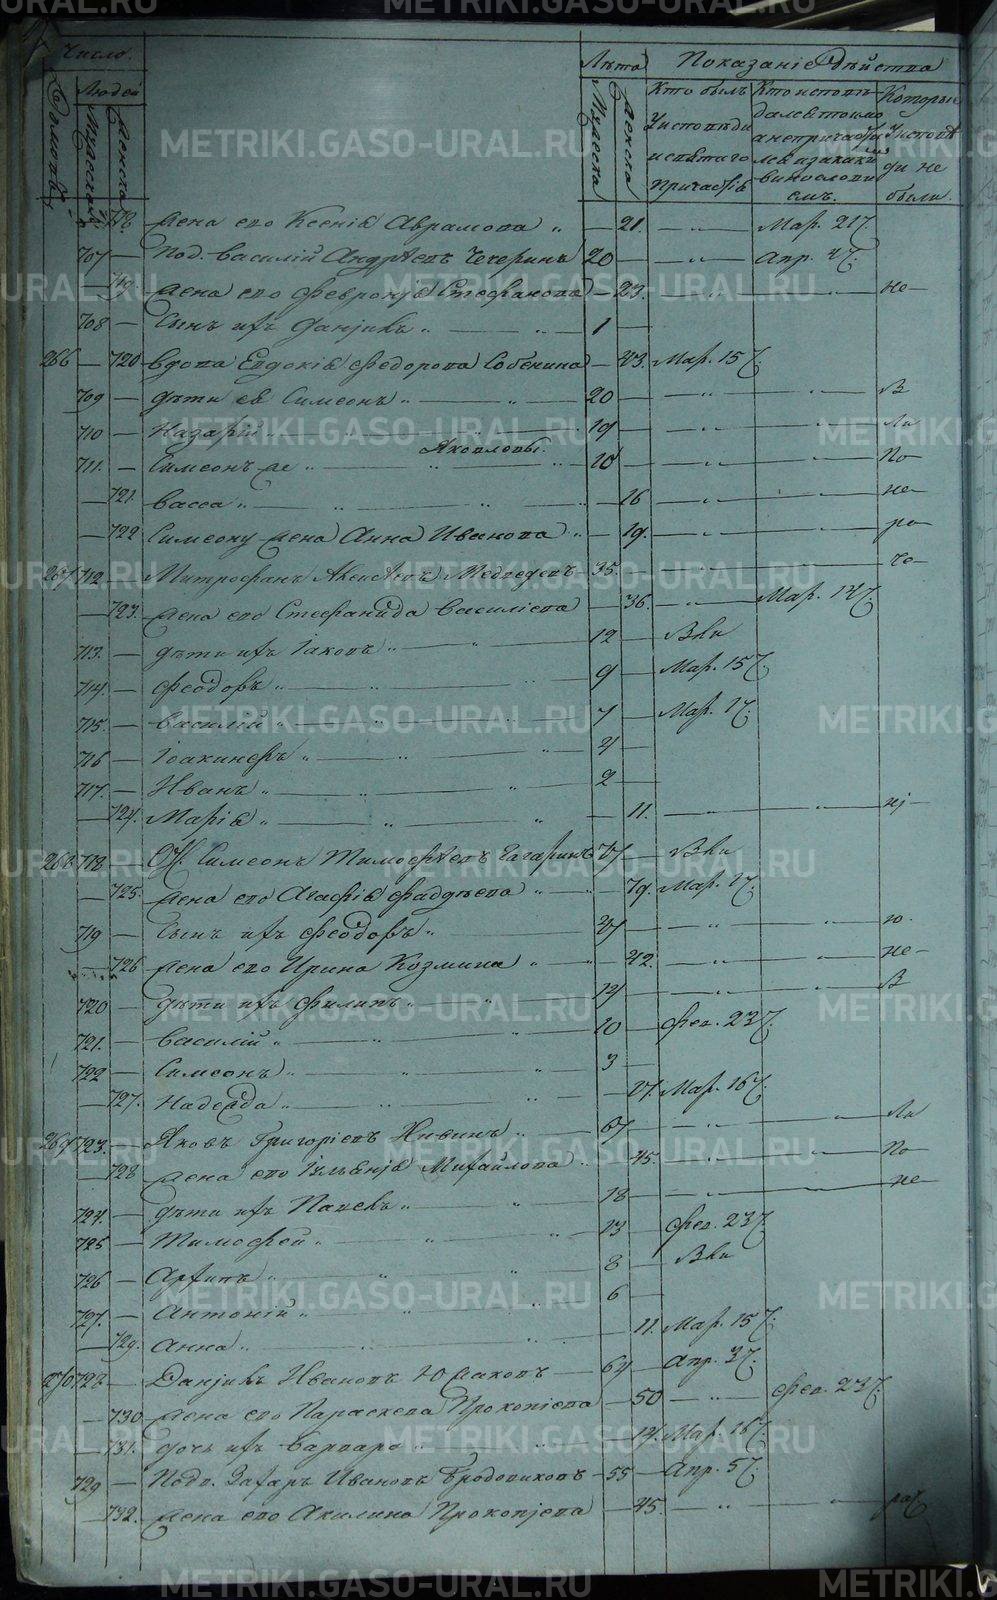 METRIKI.GASO-URAL.RU
Число.
Людей
Домовъ
Мужеска
Женска
Лѣта
Мужеска
Женска
Показаніе Дѣйства
Кто былъ
у исповѣди
и святаго
причастія
Кто исповѣ
дался токмо
а не причасти
лся и за каки
мъ винословi
емъ.
Которые
у исповѣ
ди не
были.
718. Жена его Ксенія Аврамова 21. Мар. 21
707 Под. Василій Андрѣевъ Чечеринъ 20 Апр.
719. Жена его Февронія Стефанова 23. не
708 Сынъ ихъ Даніилъ 1
266 720 Вдова Евдокія Федорова Собенина 43. Мар. 15
709 Дѣти ея Симеонъ 20 В
710 Назарій 19 Ли
Яковлевы
711. Симеонъ же 18 По
721. Васса 16 не
722 Симеону жена Анна Иванова 19. ра
267 712 Митрофанъ Алексѣевъ Медведевъ 35 че
723. Жена его Стефанида Василіева 36. Мар. 17
713. Дѣти ихъ Іаковъ 12
714 Феодоръ 9 Мар. 15
715. Василій 7 Мар. 17
716 Іоакинфъ 4
717. Иванъ 2
724. Марія 11.
268 718. Симеонъ Тимофѣевъ Гагаринъ
725. Жена его Агафія Фаддѣева 79. Мар. 17
719 Сынъ ихъ Феодоръ 47 ю.
726 Жена его Ирина Козмина 42. не
720 Дѣти ихъ Филипъ 14 В
721. Василій 10 Фев. 23
722 Симеонъ 3
727. Надежда Мар. 16
269 723. Яковъ Григоріевъ Нивинъ 67 Ли
728 Жена его Михайлова 45. По
724. Дѣти ихъ Павелъ 18 не
725 Тимофей 13 Фев. 23
726 Архипъ 8
727. Антоній 6
729. Анна 11. Мар. 15
270 728. Даніилъ Ивановъ Южаковъ 64 Апр. 3
730 Жена его Параскева Прокопіева 50 Фев. 23
731. Дочь ихъ Варвара 14. Мар. 16
729 Подв. Захаръ Ивановъ Бродовиковъ 55 Апр. 5
732. Жена его Акилина Прокопіева 45.